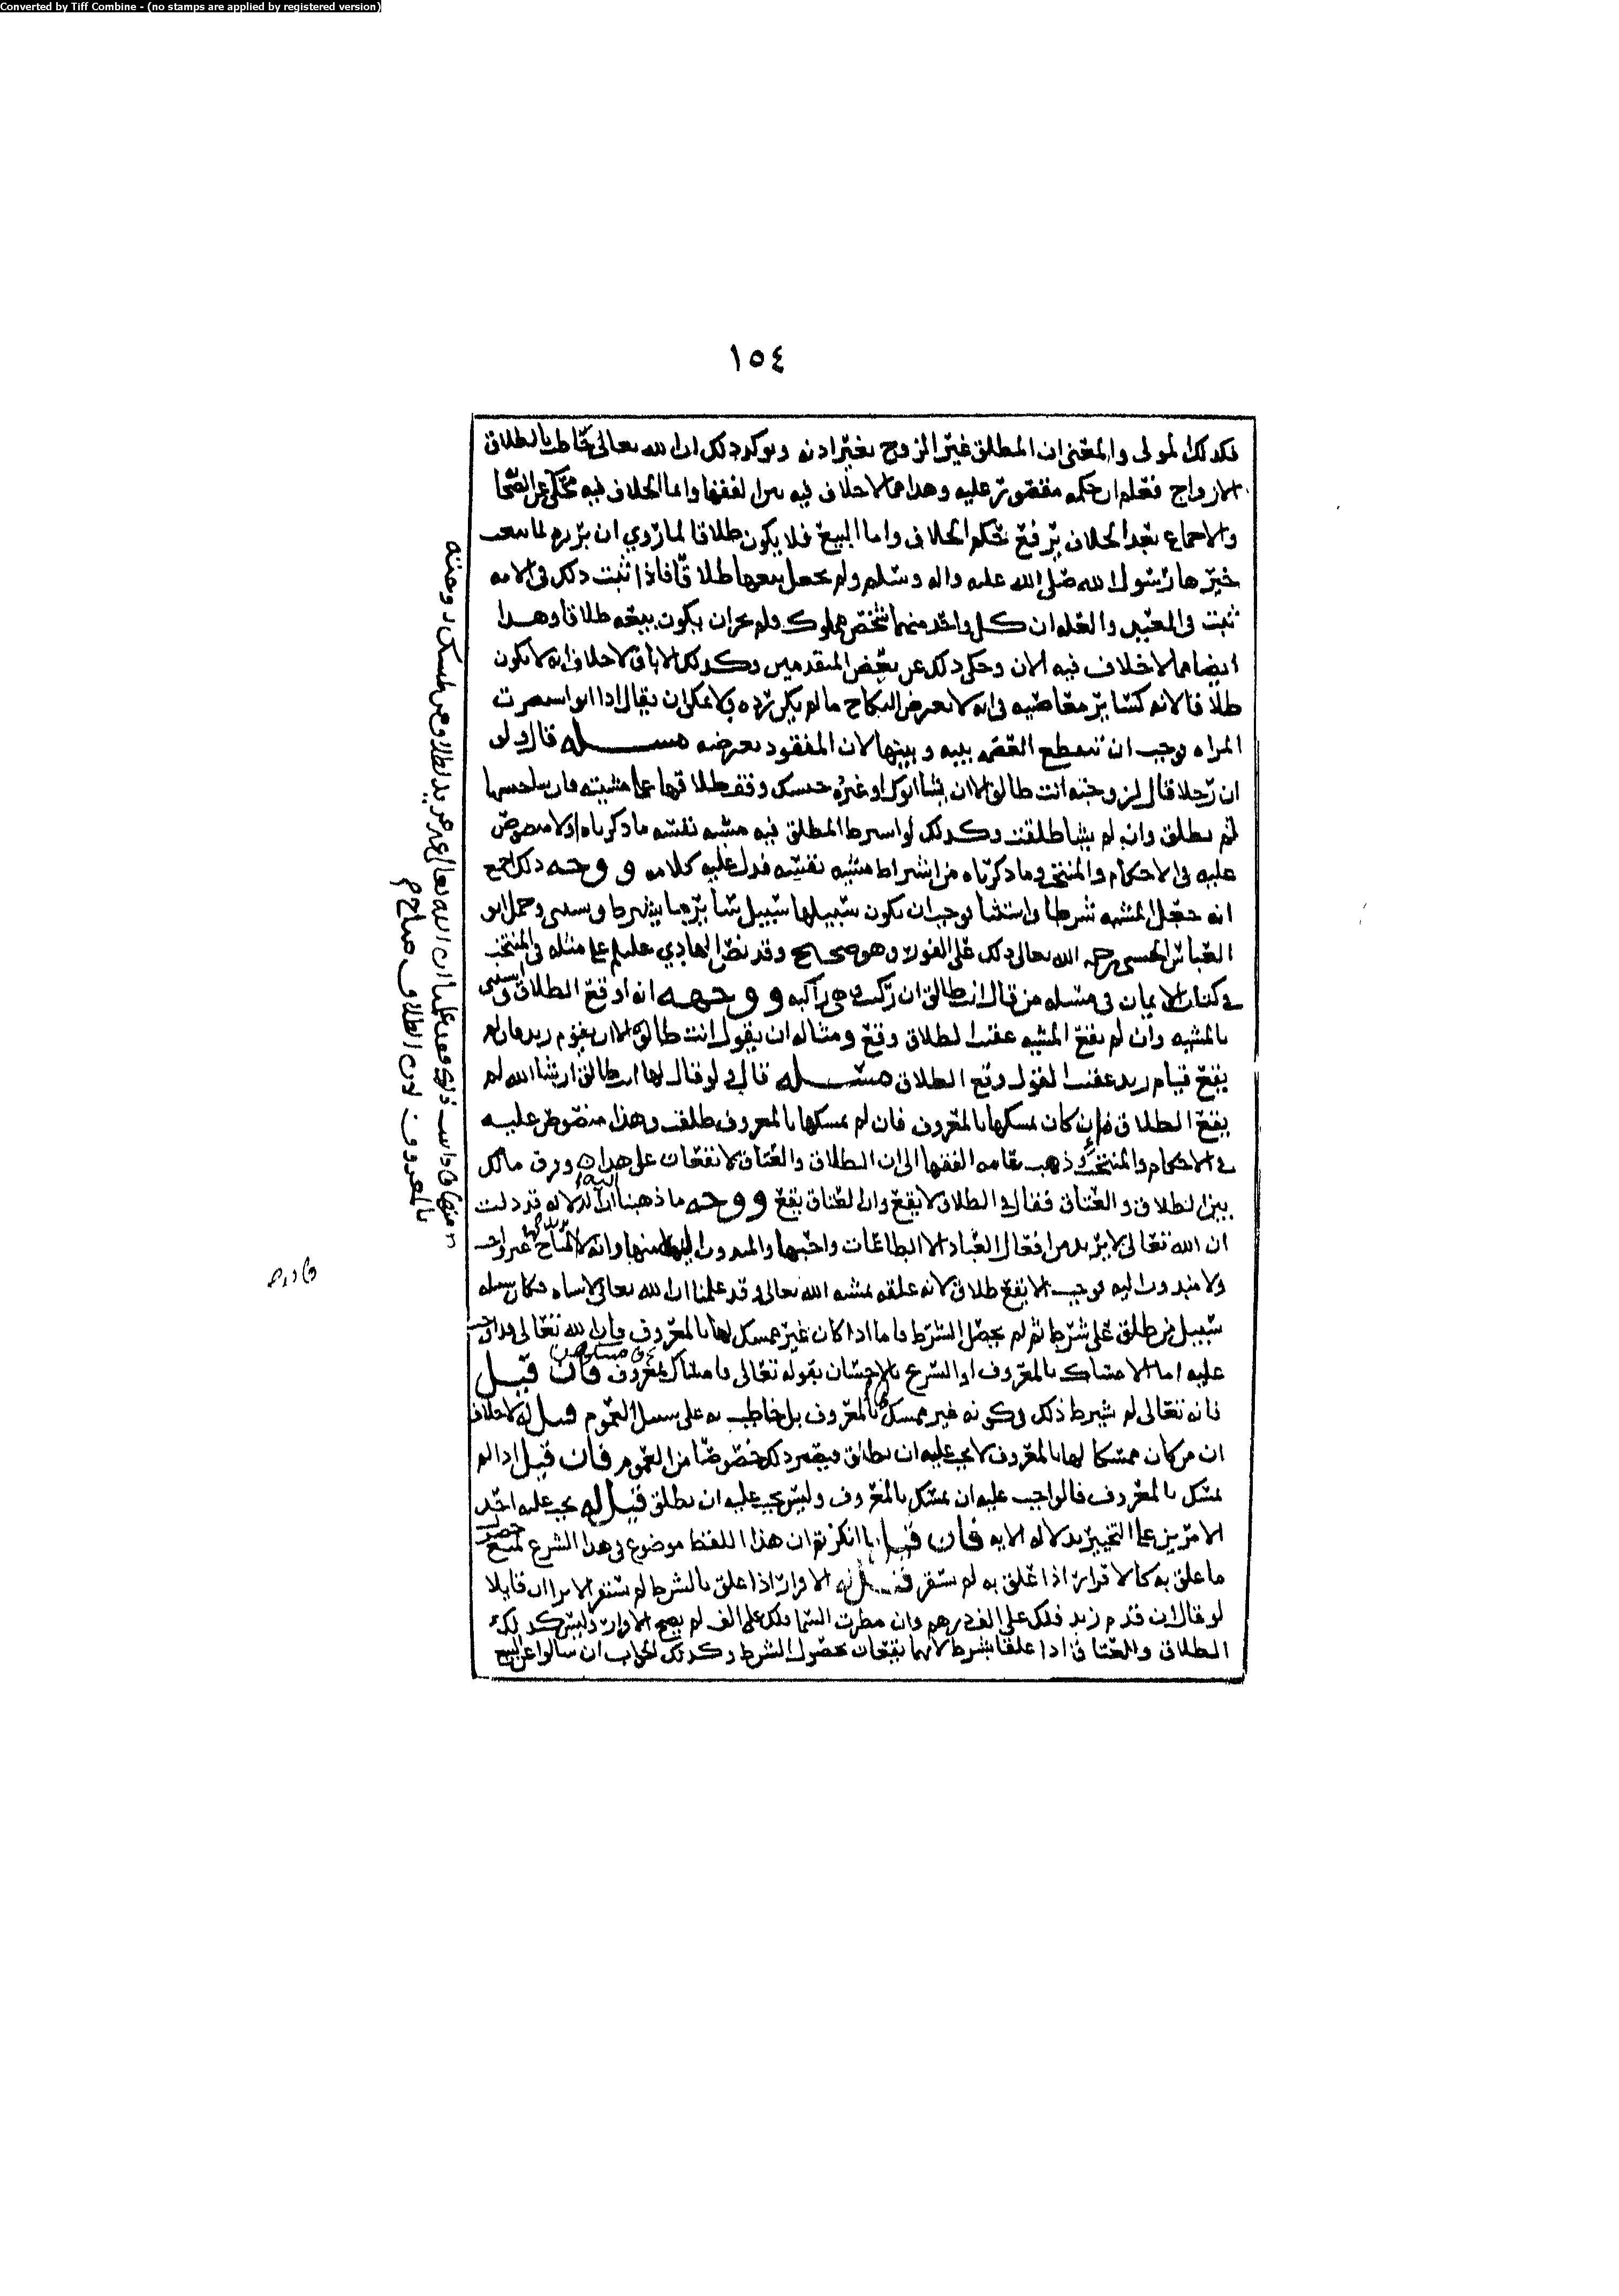 Converted by Tiff Combine - (no stamps are applied by registered version)
١٥٤
فكذلك المولى والمعنى ان المطلق غير الزوج بغير اذنه ويوكد ذلك ان الله تعالى خاطب بالطلاق
الازواج فعلم ان حكمه مقصور عليه وهذا مما لا خلاف فيه بين الفقها وانما الخلاف فيه محكي عن الصحا
والاجماع بعد الخلاف يرفع حكم الخلاف واما البيع فلا يكون طلاقا لما روي ان بريره لما بيعت
خيرها رسول الله صلى الله عليه واله وسلم ولم يجعل بيعها طلاقا فاذا ثبت ذلك في الامه
ثبت في العبد والعله ان كل واحد منهما شخص مملوك فلم يجز ان يكون بيعه طلاقا وهذا
ايضا مما لا خلاف فيه الان وحكي ذلك عن بعض المتقدمين وكذلك الاباق لا خلاف انه لا يكون
طلاقا لانه كسائر معاصيه في انه لا يعرض النكاح ما لم يكن رده ولا يمكن ان يقال اذا
المراه وجب ان تنقطع العصمه بينه وبينها لان المفقود مسله قال ولو
ان رجلا قال لزوجته انت طالق الا ان يشا ابوك او غيره وقف طلاقها على مشيته فان شا حبسها
لم تطلق وان لم يشا طلقت وكذلك لو اشترط المطلق فيه مشيه نفسه ما ذكرناه اولا منصوص
عليه في الاحكام والمنتخب وما ذكرناه من اشتراط مشيه نفسه فدل عليه كلامه ووجه ذلك اجمع
انه جعل المشيه شرطا واستثنا فوجب ان يكون سبيلها سبيل سائر ما يشترط ويستثنى وحمل ابو
العباس الحسني رحمه الله تعالى ذلك على الفور وهو صحيح وقد نص الهادي عليلم على مثله في المنتخب
في كتاب الايمان في مسله من قال انت طالق ان ركبت وهي راكبه ووجهه انه اوقع الطلاق واستثنى
بالمشيه وان لم يقع المشيه عقيب الطلاق وقع ومثاله ان يقول انت طالق الا ان يقوم زيد فان لم
يقع قيام زيد عقيب القول وقع الطلاق مسله قال ولو قال لها انت طالق ان شا الله لم
يقع الطلاق ان كان يمسكها بالمعروف فان لم يمسكها بالمعروف طلقت وهذا منصوص عليه
في الاحكام والمنتخب وذهب عامه الفقها الى ان الطلاق والعتاق لا يقعان على هذا وفرق مالك
بين الطلاق والعتاق فقال في الطلاق لا يقع وان العتاق يقع ووجه ما ذهبنا اليه ان الدلاله قد دلت
ان الله تعالى لا يريد من افعال العباد الا الطاعات واجبها والمندوب اليه منها وانه لا يريد المباح غير واجب
ولا مندوب اليه فوجب الا يقع طلاق لانه علقه بمشيه الله تعالى وقد علمنا ان الله تعالى لا يشاه فكان سبيله
سبيل من طلق على شرط ثم لم يحصل الشرط فاما اذا كان غير ممسك لها بالمعروف فان الله تعالى قد اوجب
عليه اما الامساك بالمعروف او التسريح بالاحسان بقوله تعالى فامساك بمعروف فان قيل
فانه تعالى لم يشرط ذلك في كونه غير ممسك بالمعروف بل خاطب به على سبيل العموم قيل له لا خلاف
ان من كان ممسكا لها بالمعروف لا يجب عليه ان يطلق فيصير ذلك خصوصا من العموم فان قيل اذا لم
يمسك بالمعروف فالواجب عليه ان يمسك بالمعروف وليس يجب عليه ان يطلق قيل له يجب عليه احد
الامرين على التخيير بدلاله الايه فان قيل ما انكرتم ان هذا اللفظ موضوع في هذا الشرع لمنع حصول
ما علق به كالاقرار اذا علق به لم يستقر قيل له الاقرار اذا علق بالشرط لم يستقر الا ترى ان قايلا
لو قال ان قدم زيد فلك علي الف درهم وان مطرت السما فلك علي الف لم يصح الاقرار وليس كذلك
الطلاق والعتاق اذا علقا بشرط لانهما يقعان بحصول الشرط وكذلك الجواب ان سالوا عن البيع
بالمعروف لان الطلاق مباح